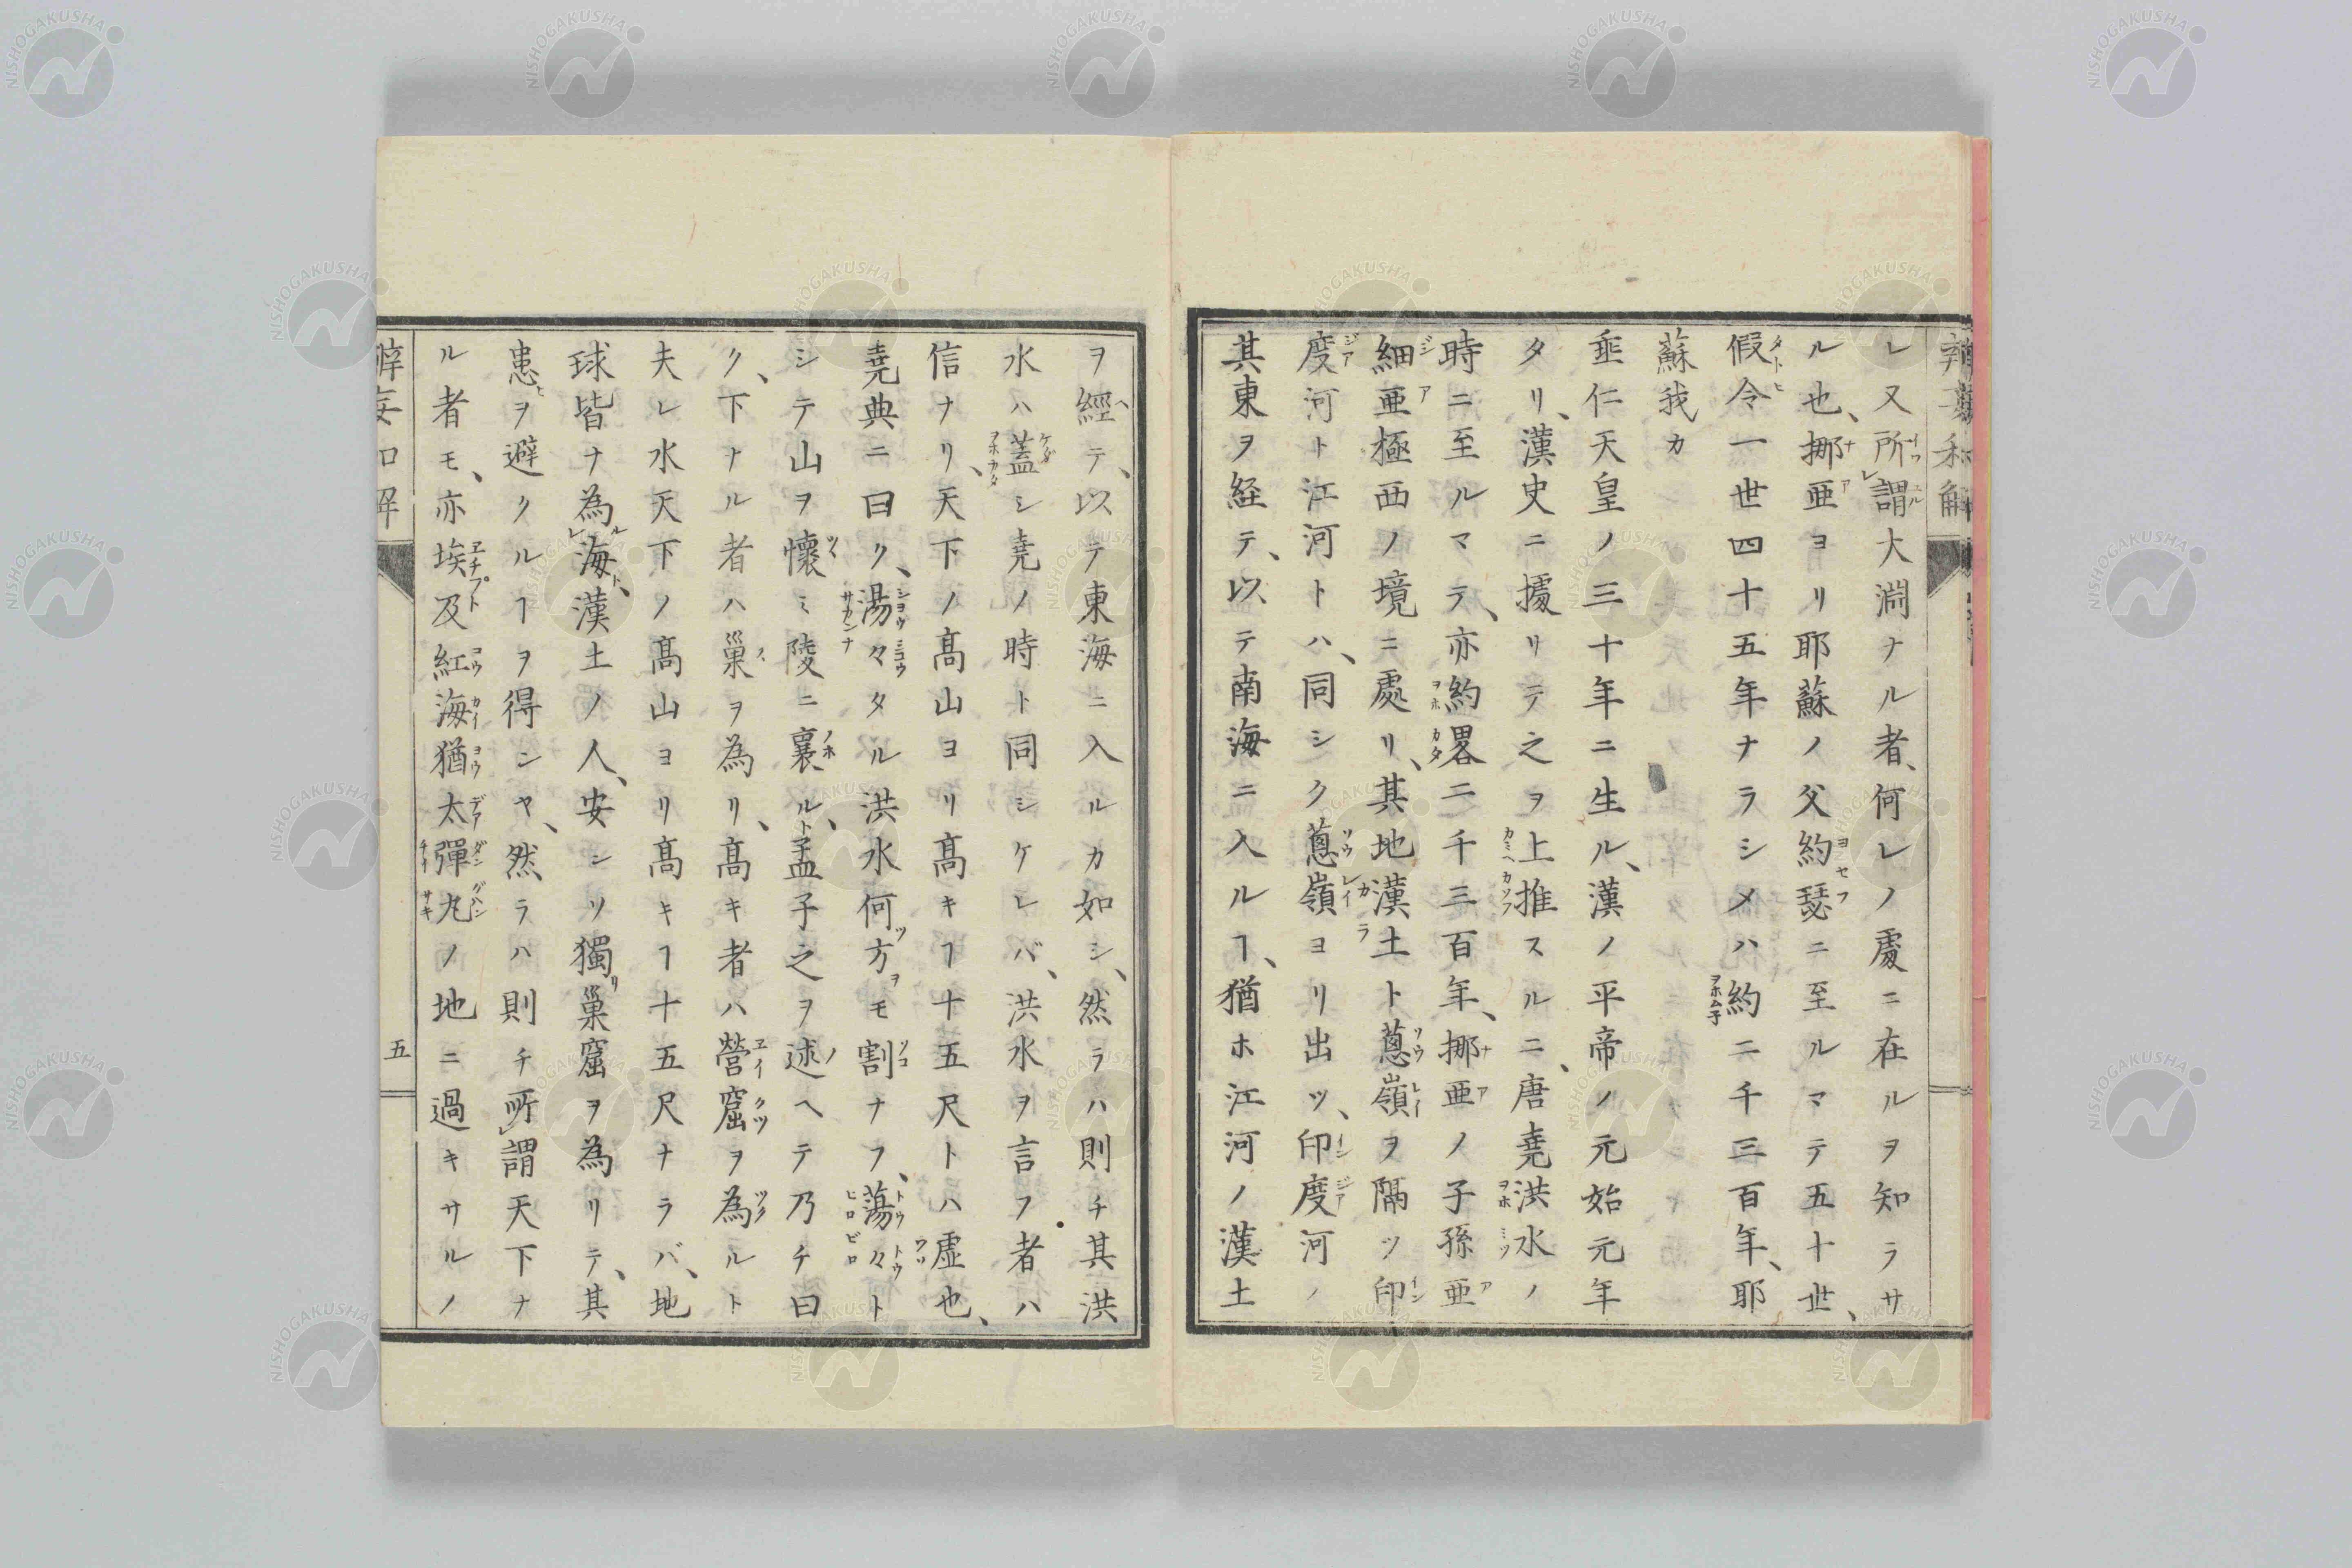 レ又所謂大淵ナル者、何レノ處ニ在ルヲ知ラサ
ル也、挪亜ヨリ耶蘇ノ父約瑟ニ至ルマテ五十世、
假令一世四十五年ナラシメハ約二千三百年、耶
蘇我カ
垂仁天皇ノ三十年ニ生ル、漢ノ平帝ノ元始元年
タリ、漢史ニ據リテ之ヲ上推スルニ、唐堯洪水ノ
時ニ至ルマテ、亦約畧二千三百年、挪亜ノ子孫亜
細亜極西ノ境ニ處リ、其地漢土ト蔥嶺ヲ隔ツ印
度河ト江河トハ、同シク蔥嶺ヨリ出ツ、印度河ノ
其東ヲ経テ、以テ南海ニ入ルヿ、猶ホ江河ノ漢土
ヲ經テ、以テ東海ニ入ルカ如シ、然ラハ則チ其洪
水ハ蓋シ堯ノ時ト同シケレバ、洪水ヲ言フ者ハ
信ナリ、天下ノ髙山ヨリ髙キヿ十五尺トハ虚也、
堯典ニ曰ク、湯々タル洪水何方ヲモ割ナフ、蕩々ト
シテ山ヲ懷ミ陵ニ襄ル、ト孟子之ヲ述ヘテ乃チ曰
ク、下ナル者ハ巢ヲ為リ、髙キ者ハ營窟ヲ為ルト
夫レ水天下ノ髙山ヨリ髙キヿ十五尺ナラバ、地
球皆ナ為ル海ト、漢土ノ人、安シソ獨リ巢窟ヲ為リテ、其
患ヲ避クルヿヲ得ンヤ、然ラハ則チ所謂天下ナ
ル者モ、亦埃及紅海猶太彈丸ノ地ニ過キサルノ
五